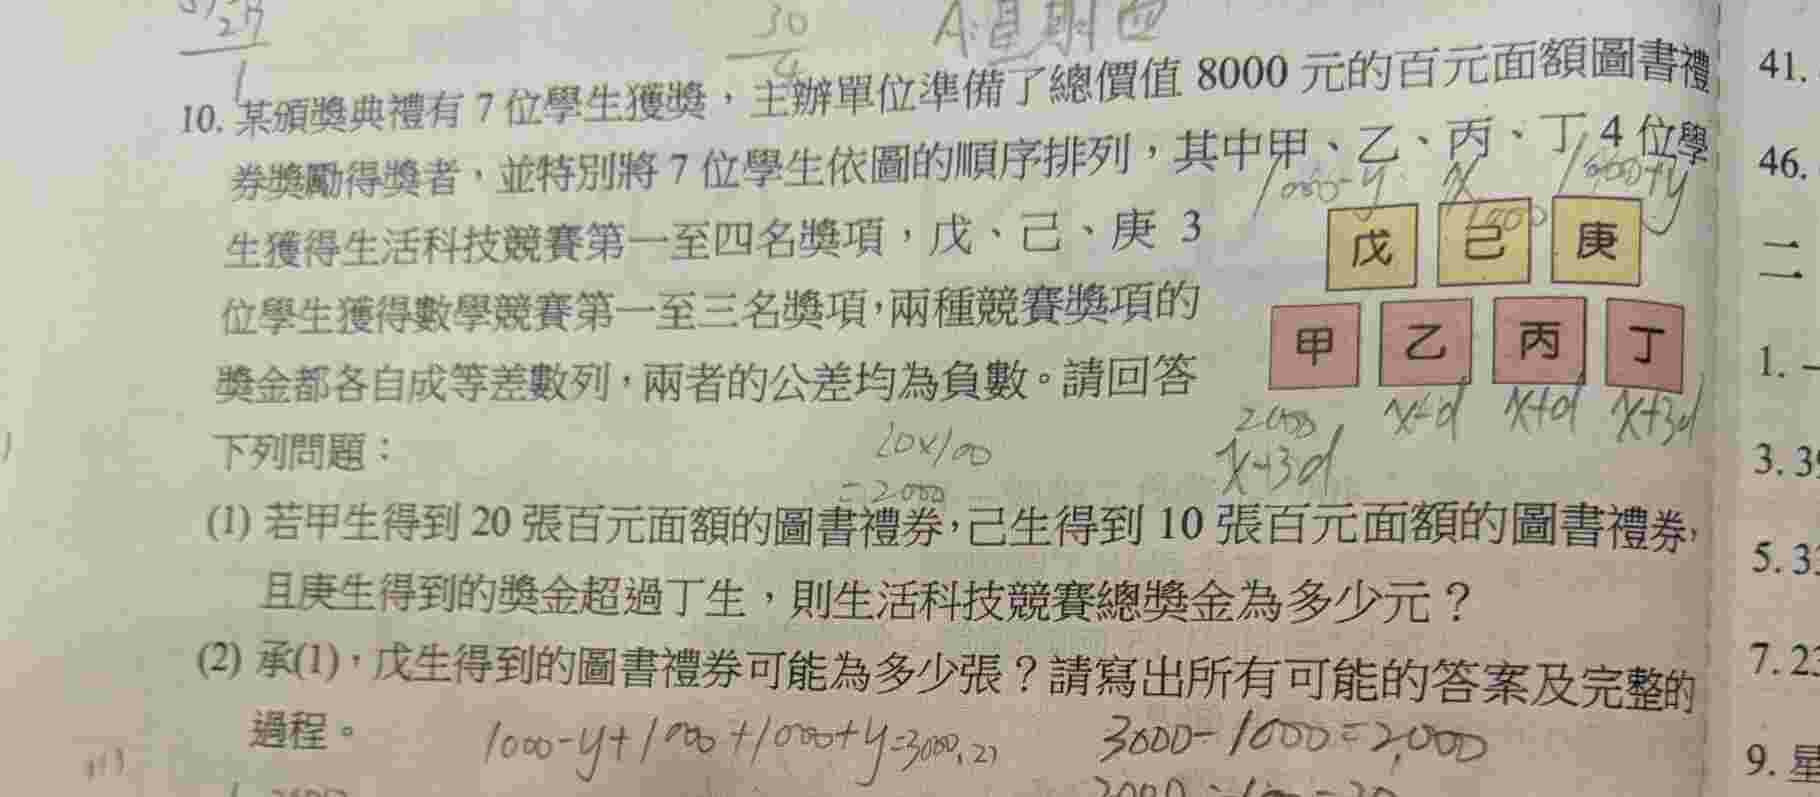 27
1
30
4
A:星期四
10. 某頒獎典禮有 7 位學生獲獎，主辦單位準備了總價值 8000 元的百元面額圖書禮
券獎勵得獎者，並特別將 7 位學生依圖的順序排列，其中甲、乙、丙、丁 4 位學
1000-y x 1000+y
1000
生獲得生活科技競賽第一至四名獎項，戊、己、庚 3
戊 己 庚
位學生獲得數學競賽第一至三名獎項，兩種競賽獎項的
甲 乙 丙 丁
獎金都各自成等差數列，兩者的公差均為負數。請回答
2000 x-d x+d x+3d
下列問題：
20×100
=2000
x-3d
(1) 若甲生得到 20 張百元面額的圖書禮券，己生得到 10 張百元面額的圖書禮券，
且庚生得到的獎金超過丁生，則生活科技競賽總獎金為多少元？
(2) 承(1)，戊生得到的圖書禮券可能為多少張？請寫出所有可能的答案及完整的
過程。
1000-y+1000+1000+y=3000
3000-1000=2000
41.
46.
二
1.
3. 3
5. 3
7. 2
9. 星